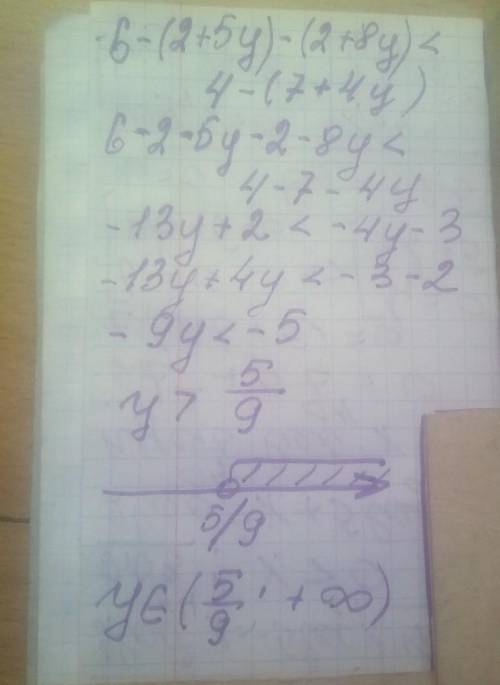 6-(2+5y)-(2+8y)<
4-(7+4y)
6-2-5y-2-8y<
4-7-4y
-13y+2<-4y-3
-13y+4y<-3-2
-9y<-5
y> 5/9
5/9
y∈(5/9; +∞)